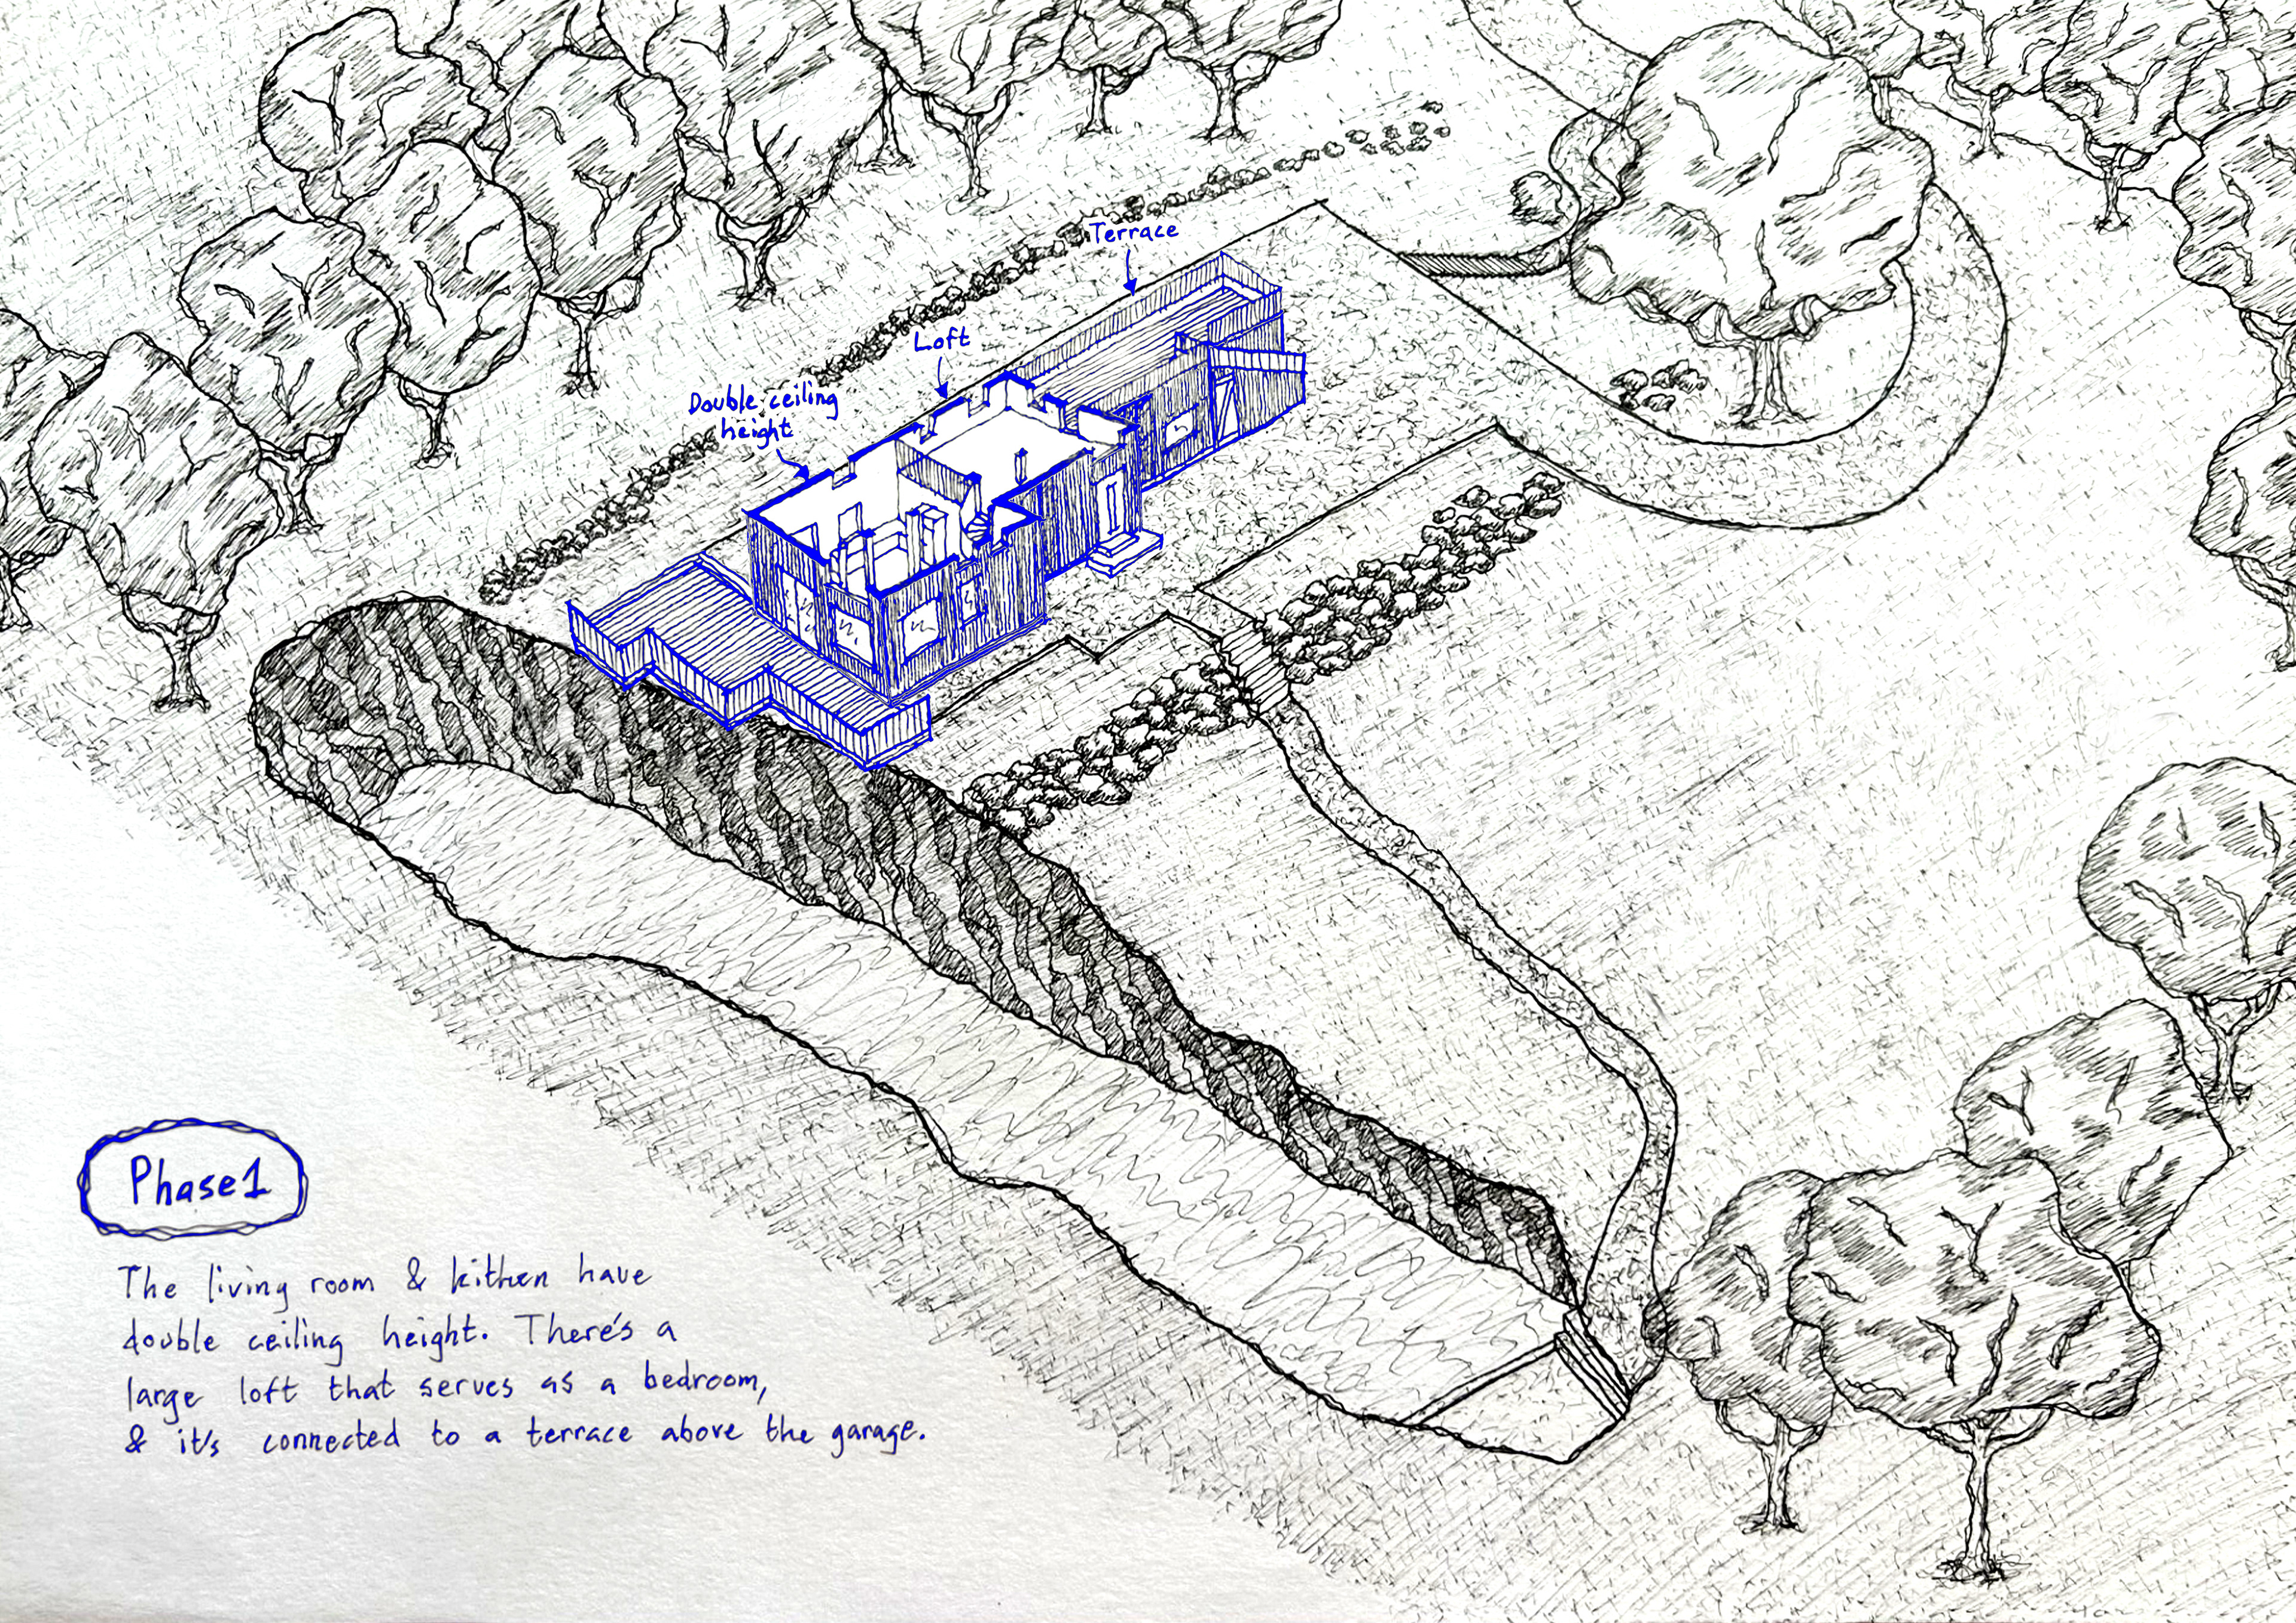 Terrace
Loft
Double ceiling
height
Phase 1
The living room & kithen have
double ceiling height. There's a
large loft that serves as a bedroom,
& it's connected to a terrace above the garage.